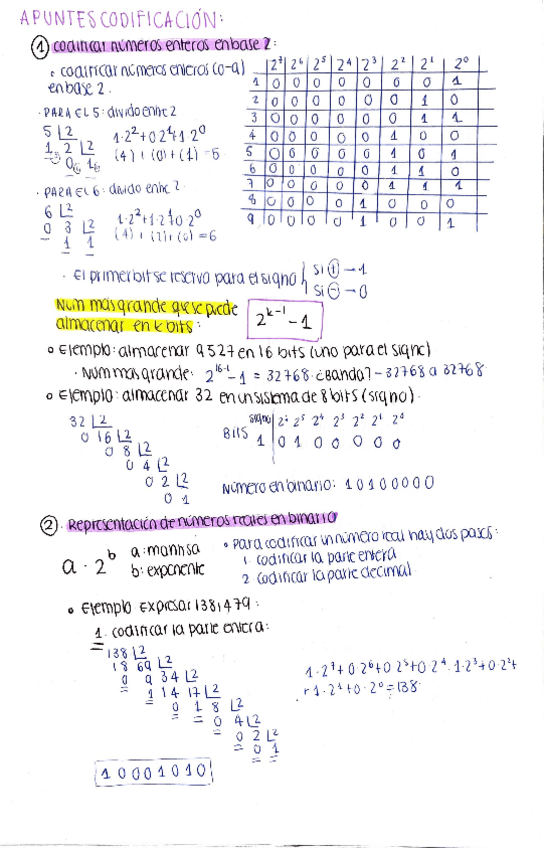 APUNTES CODIFICACIÓN:
① codificar números enteros en base 2:
• codificar números enteros (0-9)
en base 2.
2⁷ 2⁶ 2⁵ 2⁴ 2³ 2² 2¹ 2⁰
1 0 0 0 0 0 0 0 1
2 0 0 0 0 0 0 1 0
3 0 0 0 0 0 0 1 1
4 0 0 0 0 0 1 0 0
5 0 0 0 0 0 1 0 1
6 0 0 0 0 0 1 1 0
7 0 0 0 0 0 1 1 1
8 0 0 0 0 1 0 0 0
9 0 0 0 0 1 0 0 1
· PARA EL 5: divido entre 2
5 |2
1 2 |2
0 1
1·2²+0·2¹+1·2⁰
(4)+(0)+(1)=5
· PARA EL 6: divido entre 2
6 |2
0 3 |2
1 1
1·2²+1·2¹+0·2⁰
(4)+(2)+(0)=6
· El primer bit se reserva para el signo
si ⊕→1
si ⊖→0
Num mas grande que se puede
almacenar en k bits:
2^(k-1) - 1
• Ejemplo: almacenar 9527 en 16 bits (uno para el signo)
· Num mas grande: 2^(16-1) - 1 = 32768. ¿Banda? -32768 a 32768
• Ejemplo: almacenar 32 en un sistema de 8 bits (signo).
32 |2
0 16 |2
0 8 |2
0 4 |2
0 2 |2
0 1
signo 2⁶ 2⁵ 2⁴ 2³ 2² 2¹ 2⁰
BITS 1 0 1 0 0 0 0 0
Número en binario: 10100000
② Representación de números reales en binario
a · 2ᵇ
a: mantisa
b: exponente
• Para codificar un número real hay dos pasos:
1 codificar la parte entera
2 codificar la parte decimal
• Ejemplo Expresar 138,479:
1. codificar la parte entera:
138 |2
18 69 |2
0 9 34 |2
1 14 17 |2
0 1 8 |2
0 4 |2
0 2 |2
0 1
1·2⁷+0·2⁶+0·2⁵+0·2⁴·1·2³+0·2²+
+1·2¹+0·2⁰=138
10001010